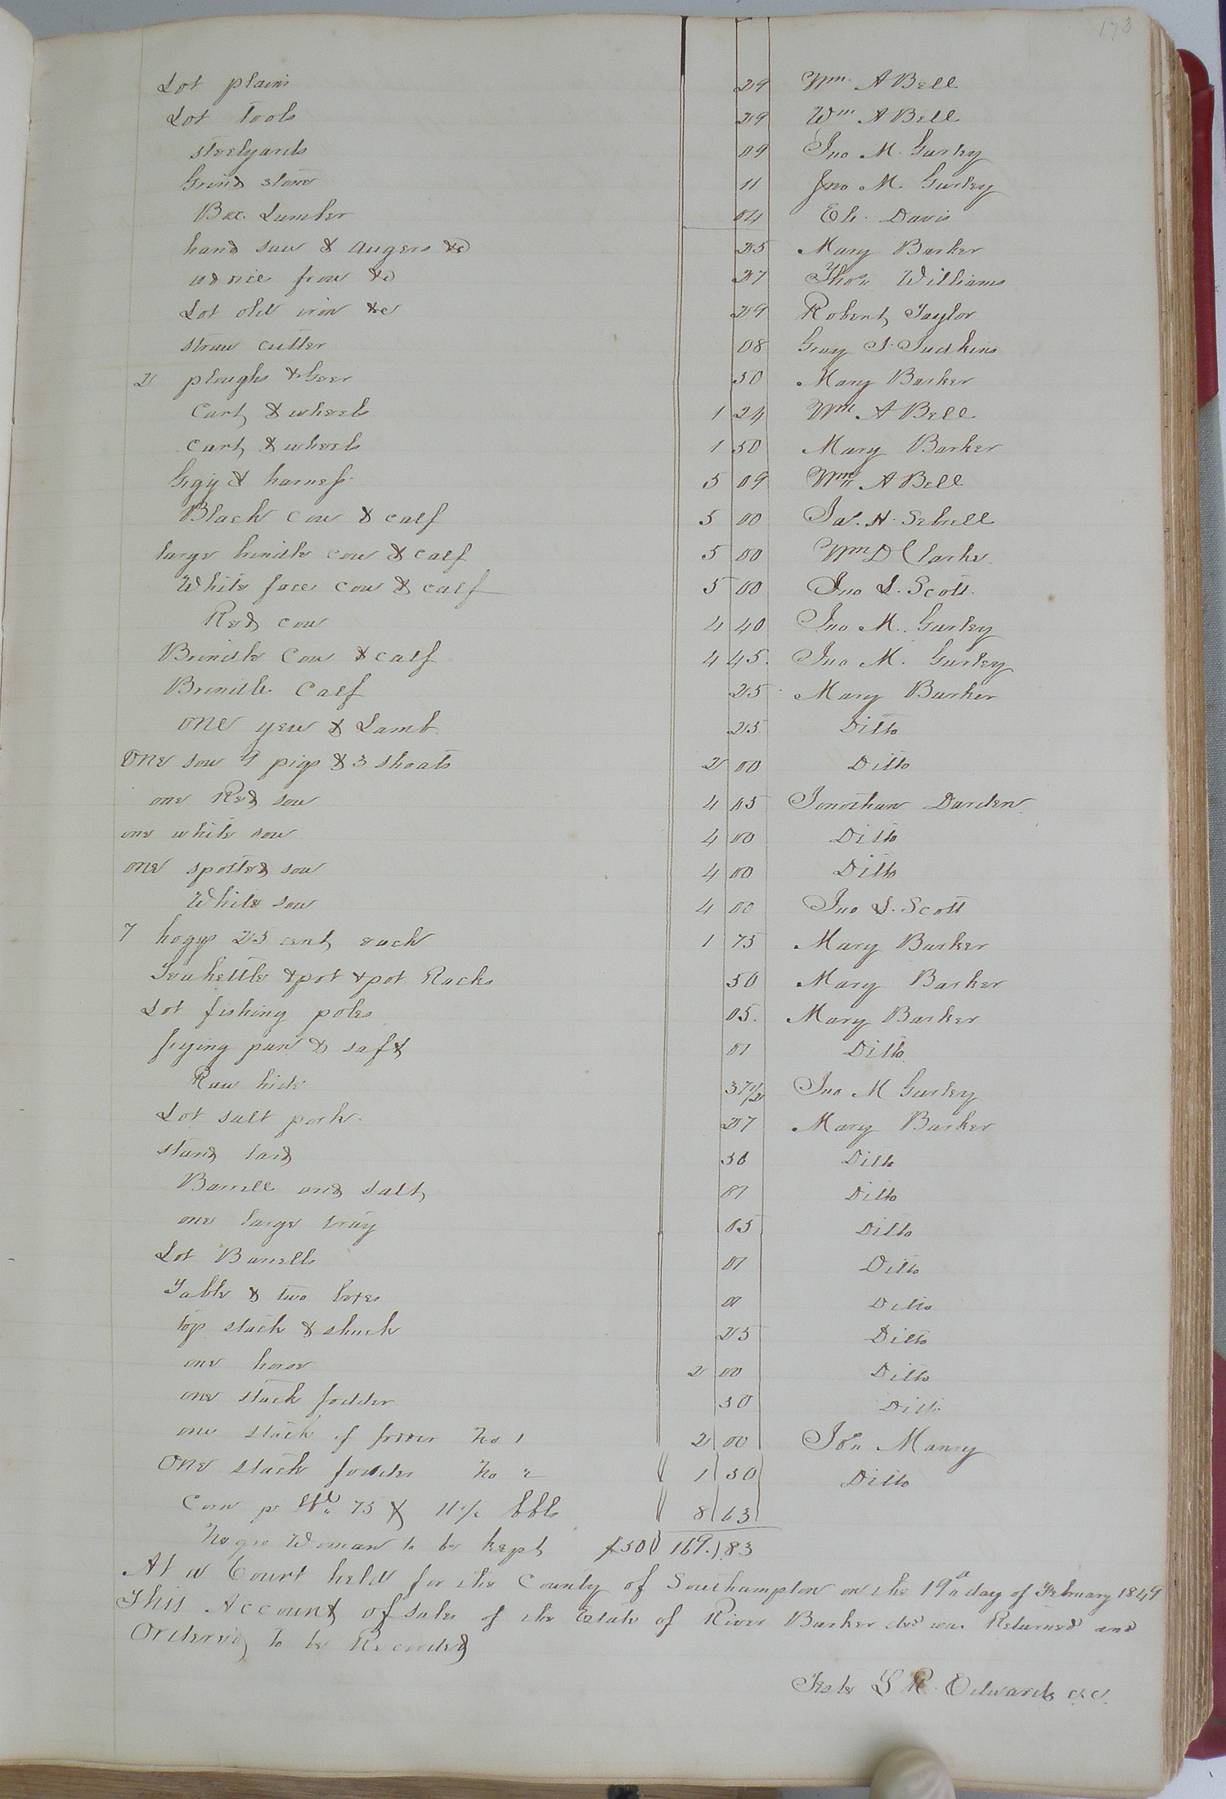 173
Lot plains 29 Wm A Bell
Lot Tools 29 Wm A Bell
steelyards 09 Jno M. Gurley
Grind stone 11 Jno M. Gurley
Box Lumber 04 Eli Davis
hand saw & augers &c 25 Mary Barker
adrice frow &c 27 Thos Williams
Lot old iron &c 29 Robert Taylor
straw cutter 08 Gray J. Judkins
2 ploughs & Geer 50 Mary Barker
Cart & wheels 1 24 Wm A Bell
cart & wheels 1 50 Mary Barker
Gigy & harness 5 09 Wm A Bell
Black cow & calf 5 00 Jas. H. Sebrell
large brindle cow & calf 5 00 Wm D Clarke
White face cow & calf 5 00 Jno S. Scott
Red cow 4 40 Jno M. Gurley
Brindle Cow & calf 4 45 Jno M. Gurley
Brindle Calf 25 Mary Barker
one yew & Lamb 25 Ditto
One sow 9 pigs & 3 shoats 2 00 Ditto
one Red sow 4 05 Jonathan Darden
one white sow 4 00 Ditto
one spotted sow 4 00 Ditto
White sow 4 00 Jno S. Scott
7 hogs 25 cent each 1 75 Mary Barker
Teakettle & pot & pot Racks 50 Mary Barker
Lot fishing poles 05 Mary Barker
frying pan & saft 01 Ditto
Raw hide 37 1/2 Jno M Gurley
Lot salt pork 27 Mary Barker
stand lard 50 Ditto
Barrell and salt 01 Ditto
one large tray 05 Ditto
Lot Barrells 01 Ditto
Table & two boxes 01 Ditto
top stack & shuck 25 Ditto
one horse 2 00 Ditto
one stack fodder 50 Ditto
one stack of fodder No 1 2 00 Jos Maney
One stack fodder No 2 1 50 Ditto
Corn pr 75 & 11 1/2 bbls 8 63
Negro Woman to be kept $50 169.83
At a Court held for the County of Southampton on the 19th day of February 1849
This Account of sales of the Estate of River Barker decd was Returned and
Ordered to be Recorded
Teste L R Edwards c.c.